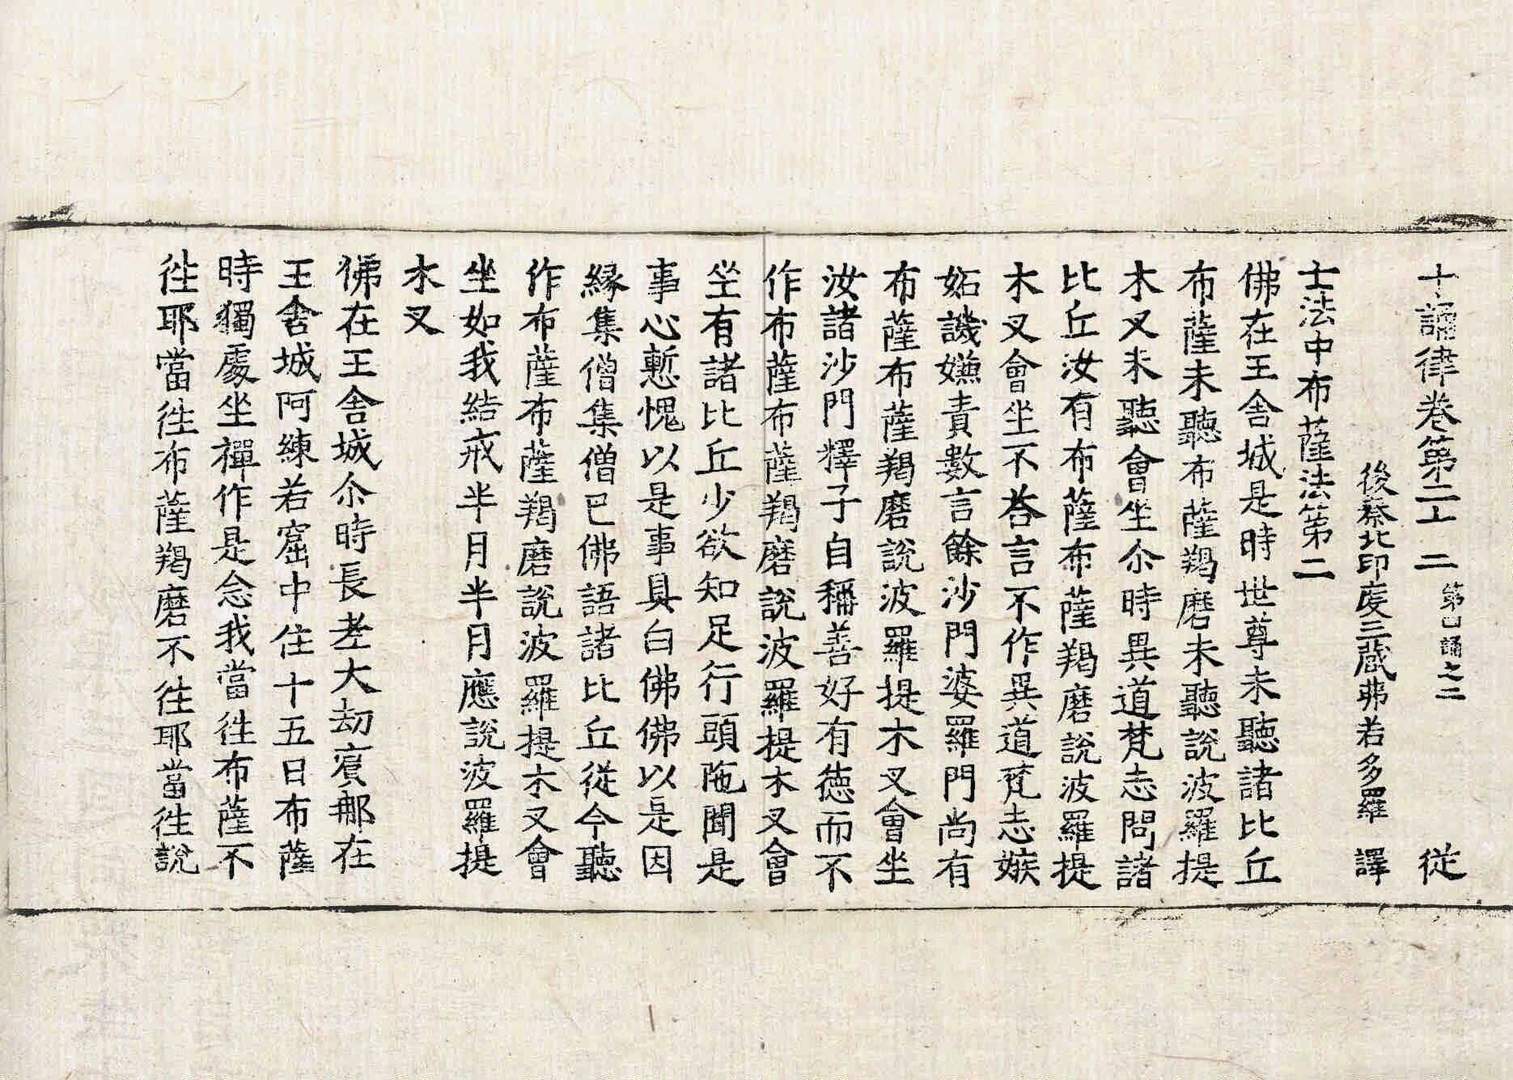 十誦律卷第二十二 第四誦之二 從
後秦北印度三蔵弗若多羅 譯
士法中布薩法第二
佛在王舍城是時世尊未聽諸比丘
布薩未聽布薩羯磨未聽說波羅提
木叉未聽會坐尒時異道梵志問諸
比丘汝有布薩布薩羯磨說波羅提
木叉會坐不荅言不作異道梵志嫉
妬譏嫌責數言餘沙門婆羅門尚有
布薩布薩羯磨說波羅提木叉會坐
汝諸沙門釋子自稱善好有徳而不
作布薩布薩羯磨說波羅提木叉會
坐有諸比丘少欲知足行頭陁聞是
事心慙愧以是事具白佛佛以是因
縁集僧集僧已佛語諸比丘從今聽
作布薩布薩羯磨說波羅提木叉會
坐如我結戒半月半月應說波羅提
木叉
佛在王舍城尒時長老大劫賓那在
王舍城阿練若窟中住十五日布薩
時獨處坐禪作是念我當徃布薩不
徃耶當徃布薩羯磨不徃耶當徃說